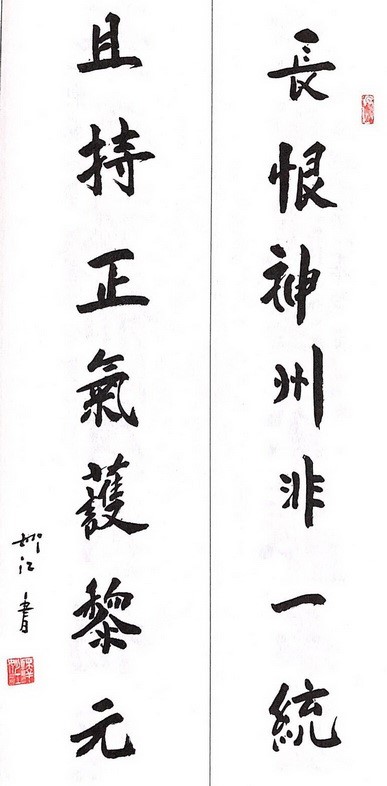 長恨神州非一統
且持正氣護黎元
江書